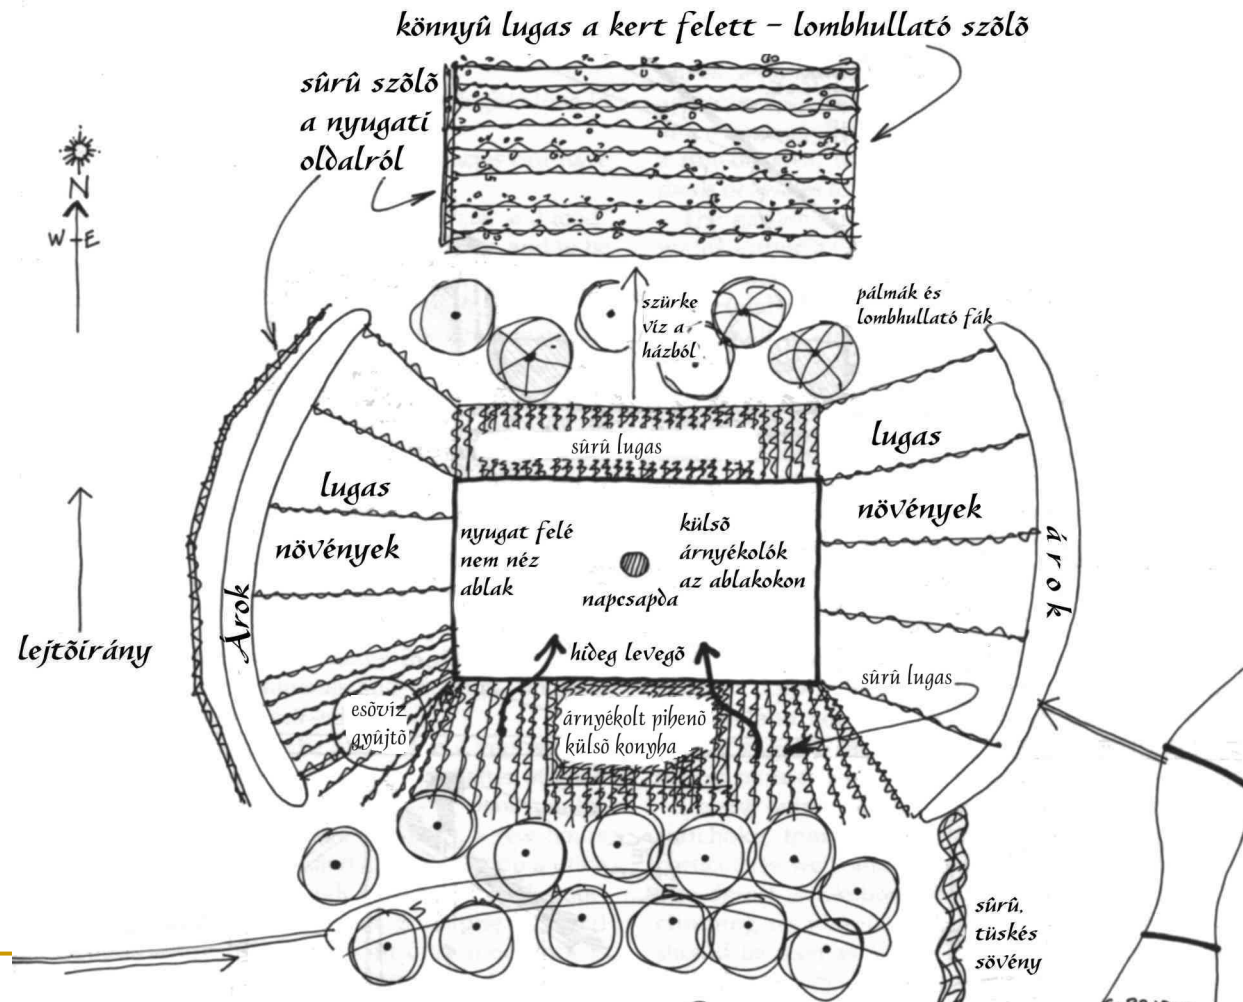 könnyû lugas a kert felett – lombhullató szõlõ
sûrû szõlõ
a nyugati
oldalról
N
W-E
szürke
víz a
házból
pálmák és
lombhullató fák
sûrû lugas
lugas
növények
lugas
növények
nyugat felé
nem néz
ablak
külsõ
árnyékolók
az ablakokon
napcsapda
Árok
árok
lejtõirány
hideg levegõ
sûrû lugas
esõvíz
gyûjtõ
árnyékolt pihenõ
külsõ konyha
SWALE
sûrû,
tüskés
sövény